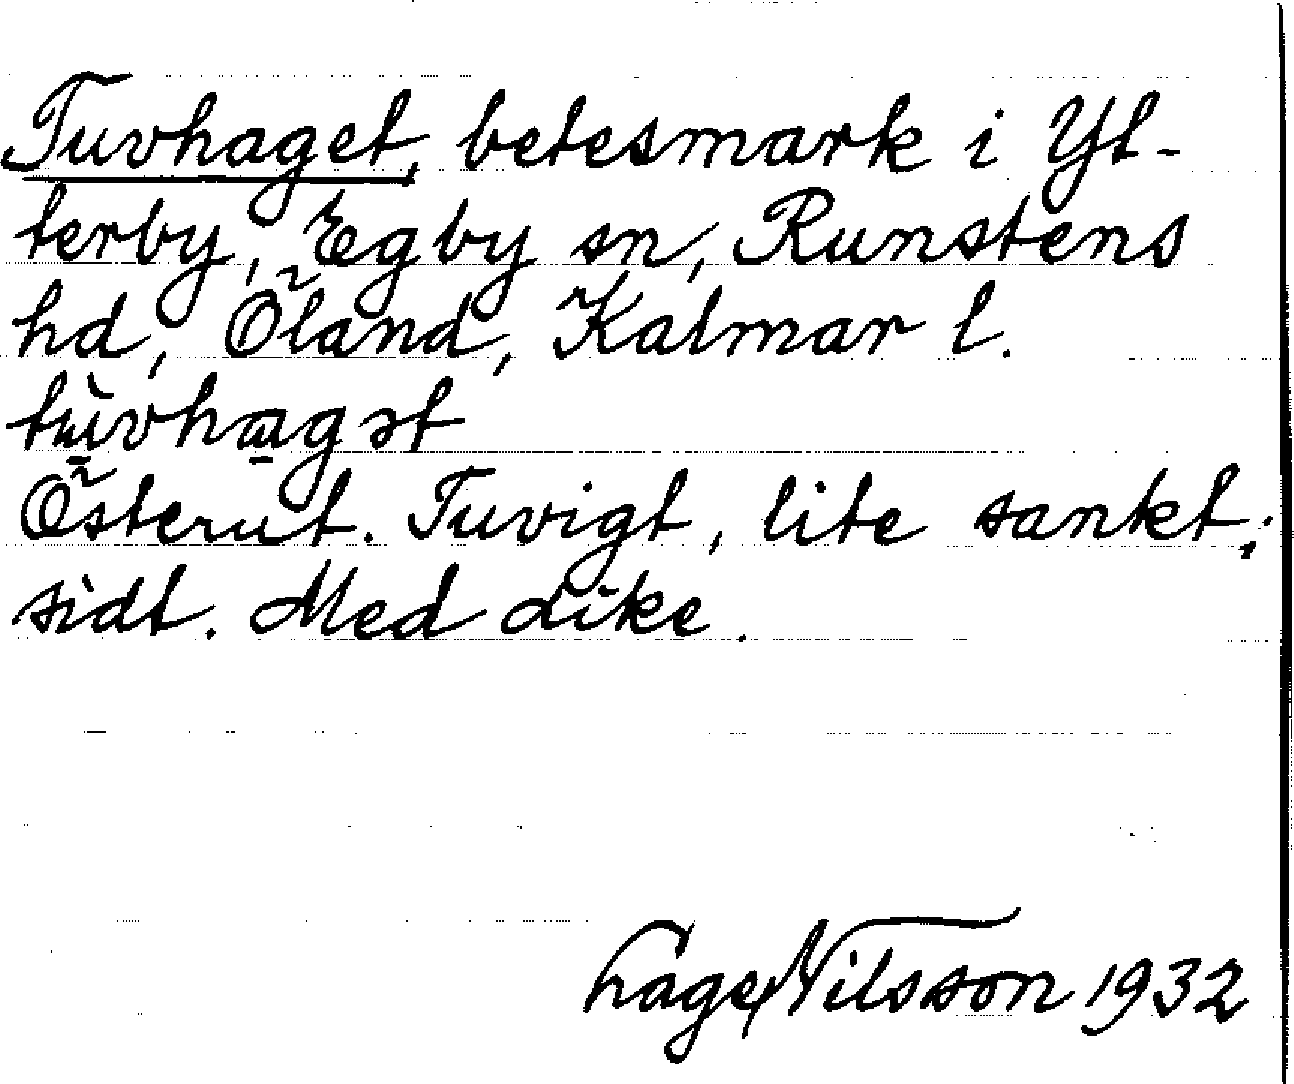 Tuvhaget, betesmark i Yt-
terby, Egby sn, Runstens
hd, Öland, Kalmar l.
tùvhagət
Österut. Tuvigt, lite sankt;
sidt. Med dike.
Hage Nilsson 1932